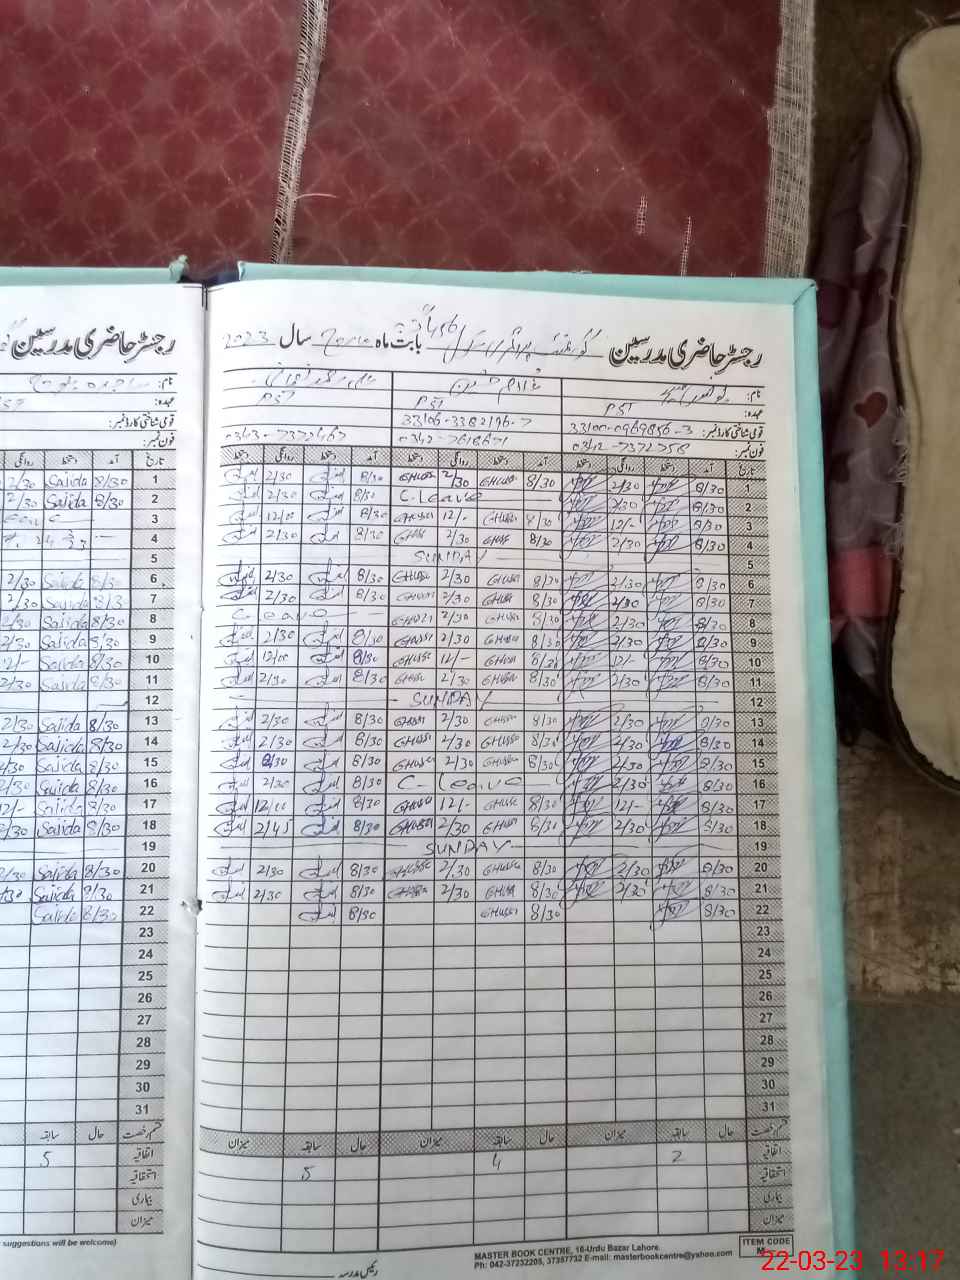 رجسٹر حاضری مدرسین گورنمنٹ پرائمری سکول بابت ماہ مارچ سال 2023
رجسٹر حاضری مدرسین
نام: غلام حسین
نام: ساجدہ
عہدہ: PST PST PST
قومی شناختی کارڈ نمبر: 33100-0969856-3 33106-3382196-7
قومی شناختی کارڈ نمبر:
فون نمبر: 0342-7372758 0342-7618671 0343-7372467
فون نمبر:
تاریخ آمد دستخط روانگی دستخط آمد دستخط روانگی دستخط آمد دستخط روانگی دستخط
تاریخ آمد دستخط روانگی
1 8/30 2/30 8/30 GHUSS 2/30 GHUSS 8/30 2/30
1 8/30 Sajida 2/30
2 8/30 2/30 C.leave 8/30 2/30
2 8/30 Sajida 2/30
3 8/30 12/- 8/30 GHUSS 12/- GHUSS 8/30 12/00
3
4 8/30 2/30 8/30 GHUSS 2/30 GHUSS 8/30 2/30
4
5 SUNDAY
5
6 8/30 2/30 8/30 GHUSS 2/30 GHUSS 8/30 2/30
6 8/30 Sajida 2/30
7 8/30 2/30 8/30 GHUSS 2/30 GHUSS 8/30 2/30
7 8/3 Sajida 2/30
8 8/30 2/30 8/30 GHUSS 2/30 GHUSS C leave
8 8/30 Sajida 2/30
9 8/30 2/30 8/30 GHUSS 2/30 GHUSS 8/30 2/30
9 8/30 Sajida 2/30
10 8/30 12/- 8/30 GHUSS 12/- GHUSS 8/30 12/00
10 8/30 Sajida 12/-
11 8/30 2/30 8/30 GHUSS 2/30 GHUSS 8/30 2/30
11 8/30 Sajida 2/30
12 SUNDAY
12
13 8/30 2/30 8/30 GHUSS 2/30 GHUSS 8/30 2/30
13 8/30 Sajida 2/30
14 8/30 2/30 8/30 GHUSS 2/30 GHUSS 8/30 2/30
14 8/30 Sajida 2/30
15 8/30 2/30 8/30 GHUSS 2/30 GHUSS 8/30 2/30
15 8/30 Sajida 2/30
16 8/30 2/30 C- leave 8/30 2/30
16 8/30 Sajida 2/30
17 8/30 12/- 8/30 GHUSS 12/- GHUSS 8/30 12/00
17 8/30 Sajida 12/-
18 8/30 2/30 8/30 GHUSS 2/30 GHUSS 8/30 2/45
18 8/30 Sajida 2/30
19 SUNDAY
19
20 8/30 2/30 8/30 GHUSS 2/30 GHUSS 8/30 2/30
20 8/30 Sajida 2/30
21 8/30 2/30 8/30 GHUSS 2/30 GHUSS 8/30 2/30
21 8/30 Sajida 2/30
22 8/30 8/30 GHUSS 8/30
22 8/30 Sajida
23
23
24
24
25
25
26
26
27
27
28
28
29
29
30
30
31
31
قسم رخصت حال سابقہ میزان حال سابقہ میزان حال سابقہ میزان
قسم رخصت حال سابقہ
اتفاقیہ 2 4 5
اتفاقیہ 5
استحقاقیہ
استحقاقیہ
بیماری
بیماری
میزان
میزان
suggestions will be welcome)
رئیس مدرسہ
MASTER BOOK CENTRE, 16-Urdu Bazar Lahore.
Ph: 042-37232205, 37357732 E-mail: masterbookcentre@yahoo.com
ITEM CODE
22-03-23 13:17